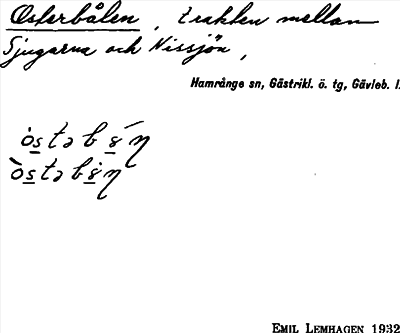 Österbålen, trakten mellan
Sjugarna och Nissjön,
Hamrånge sn, Gästrikl. ö. tg, Gävleb. l.
EMIL LEMHAGEN 1932